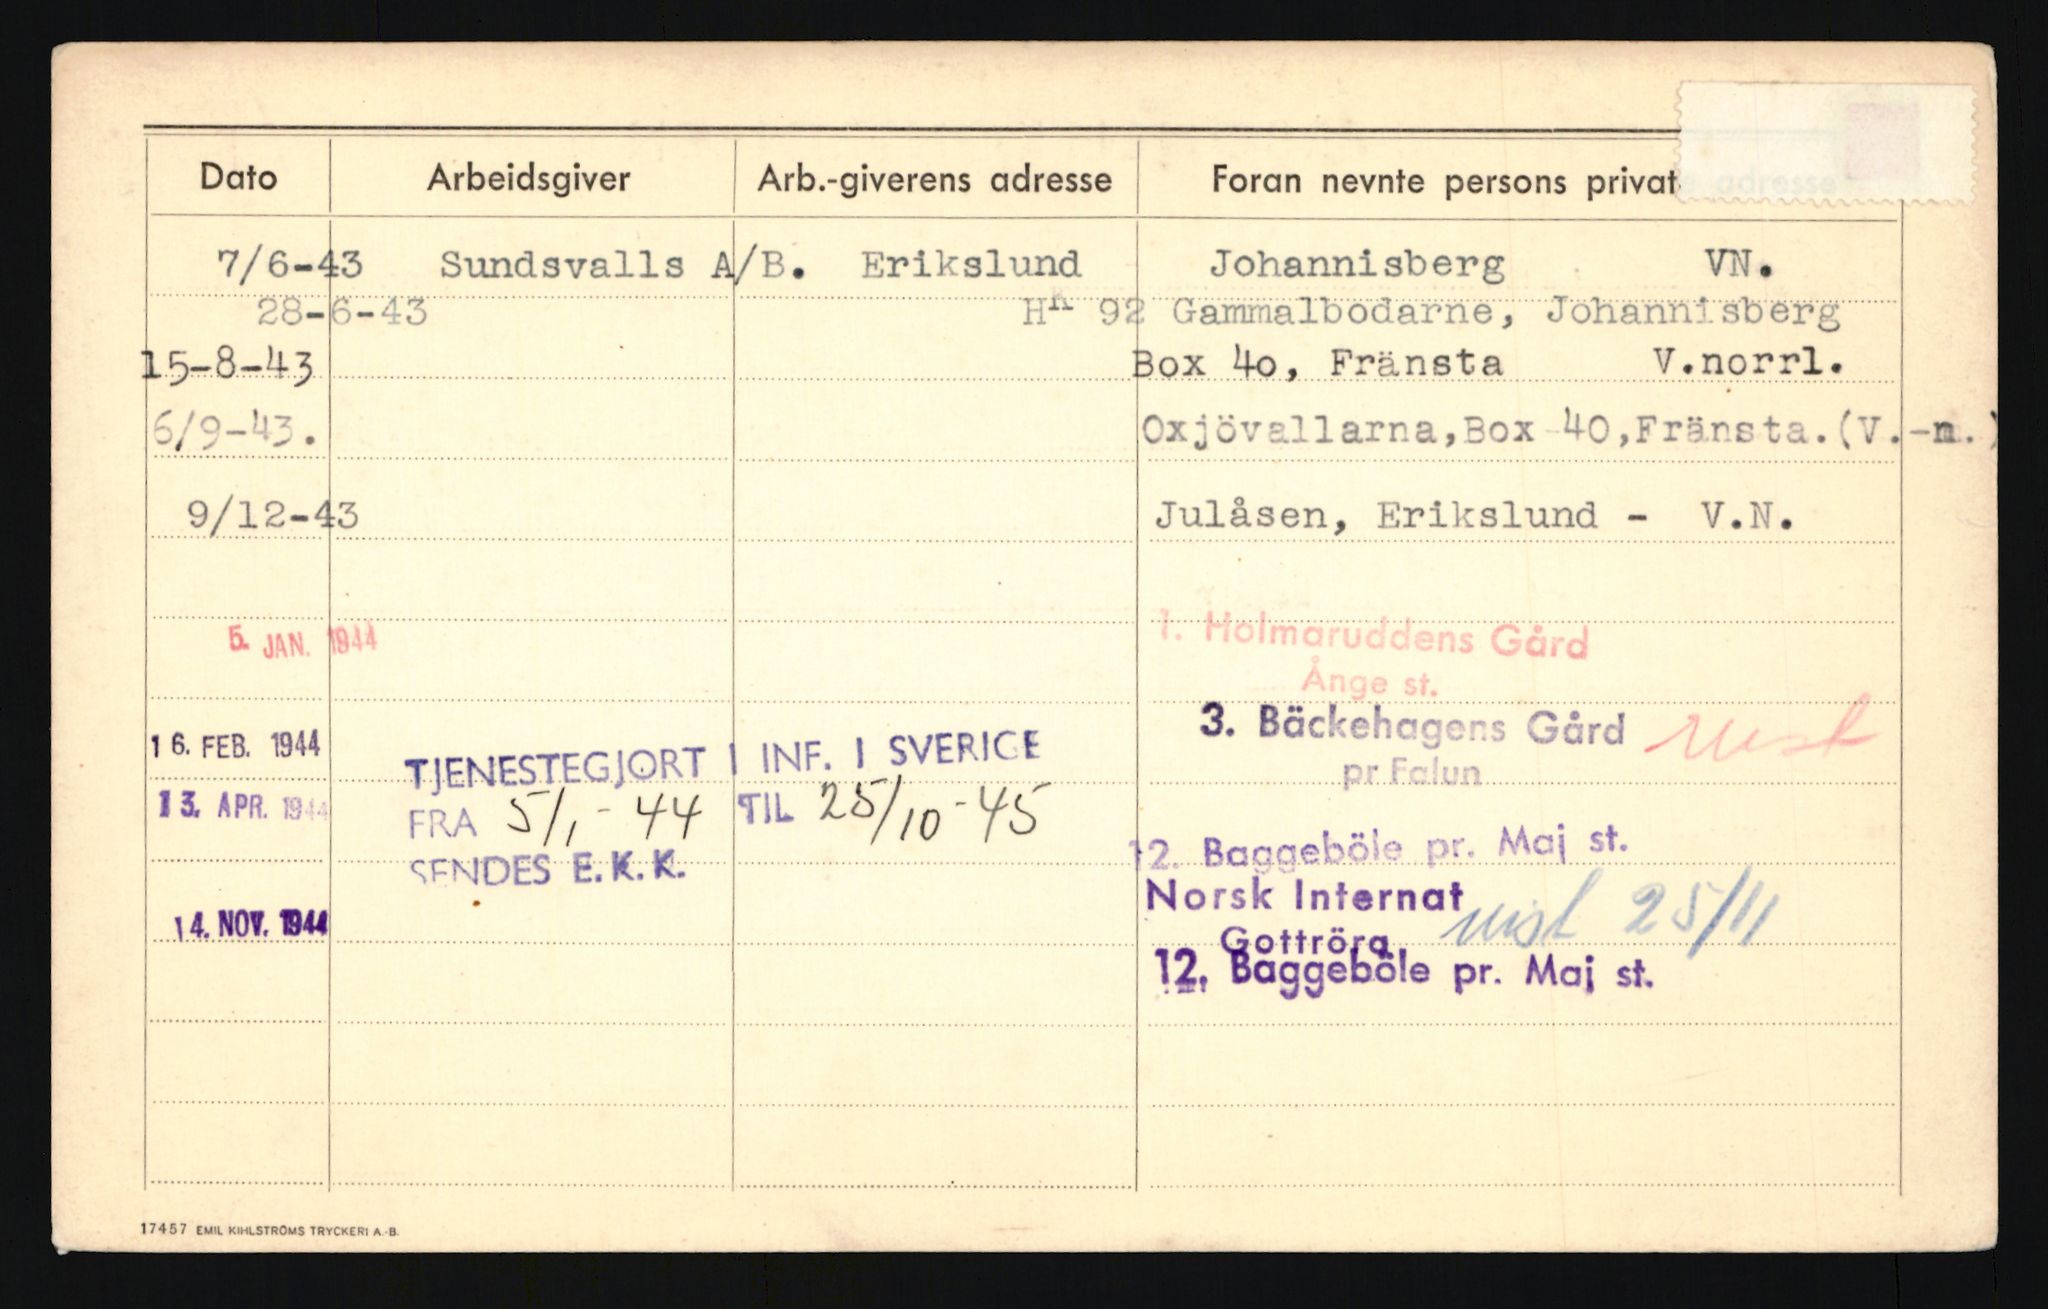 Dato Arbeidsgiver Arb.-giverens adresse Foran nevnte persons private adresse
7/6-43 Sundsvalls A/B. Erikslund Johannisberg VN.
28-6-43 HK 92 Gammalbodarne, Johannisberg
15-8-43 Box 40, Fränsta V.norrl.
6/9-43. Oxjövallarna,Box 40,Fränsta.(V.-n.)
9/12-43 Julåsen, Erikslund - V.N.
5. JAN. 1944 1. Holmaruddens Gård
Ånge st.
16. FEB. 1944 3. Bäckehagens Gård
TJENESTEGJORT I INF. I SVERIGE
pr Falun
13. APR. 1944 FRA 5/1-44 TIL 25/10-45
12. Baggeböle pr. Maj st.
SENDES E.K.K.
Norsk Internat
14. NOV. 1944 25/11
Gottröra
12. Baggeböle pr. Maj st.
17457 EMIL KIHLSTRÖMS TRYCKERI A.-B.